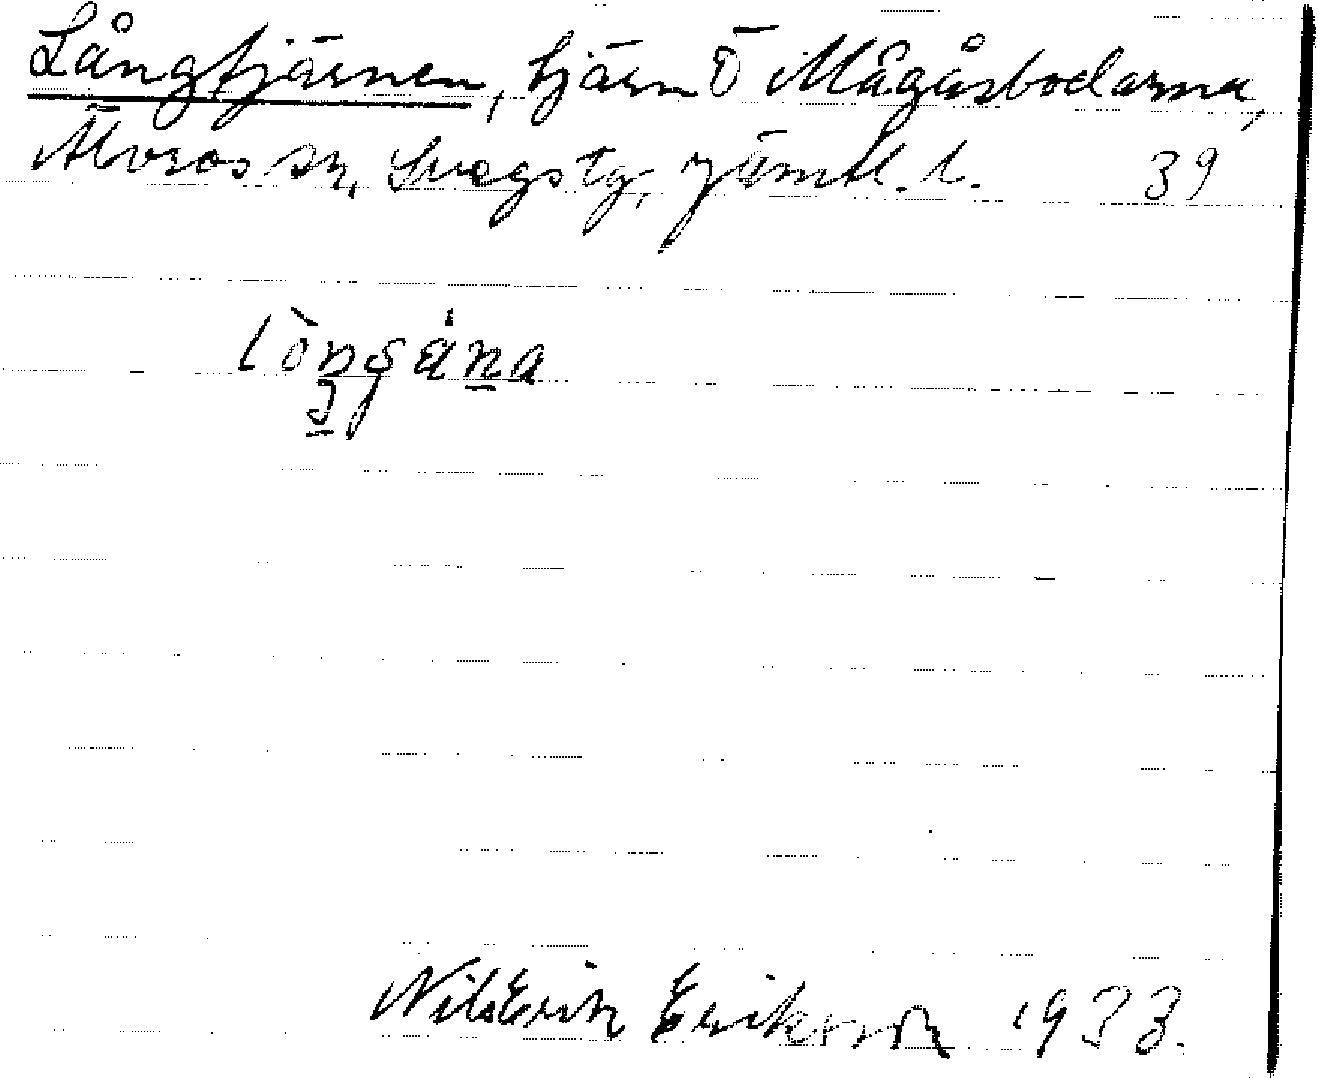 Långtjärnen, tjärn Ö Mågåsbodarna,
Älvros sn, Svegs tg, Jämtl. l. 39
Nils Erik Eriksson 1933.